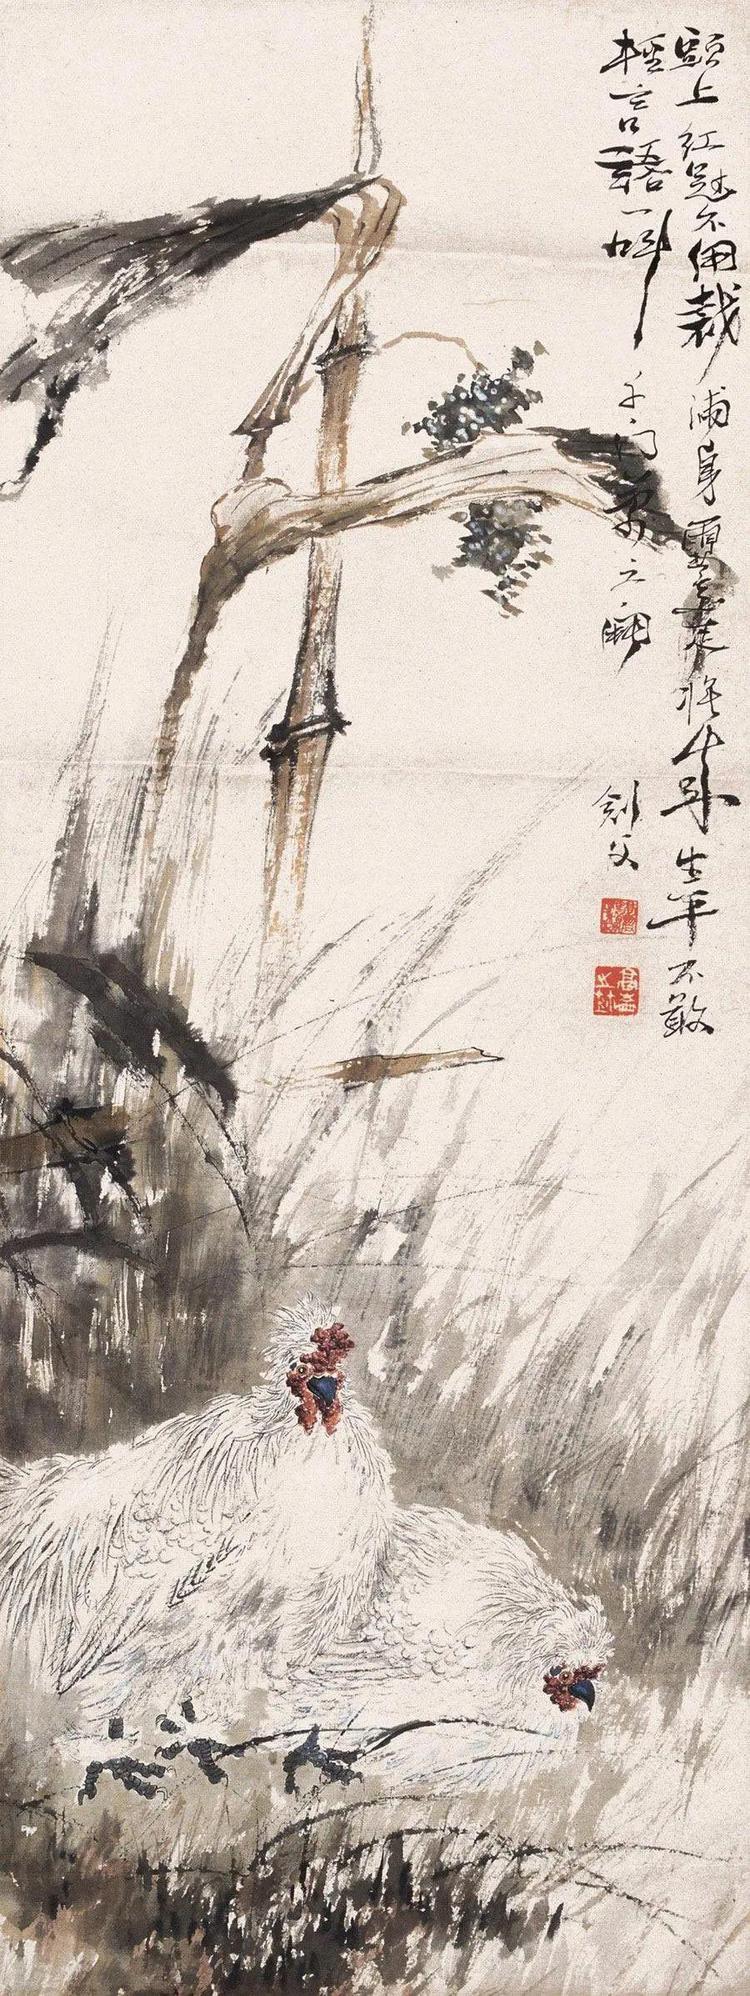 頭上红冠不用裁满身雪白走將来平生不敢
輕言語一叫千門萬户開
剑父